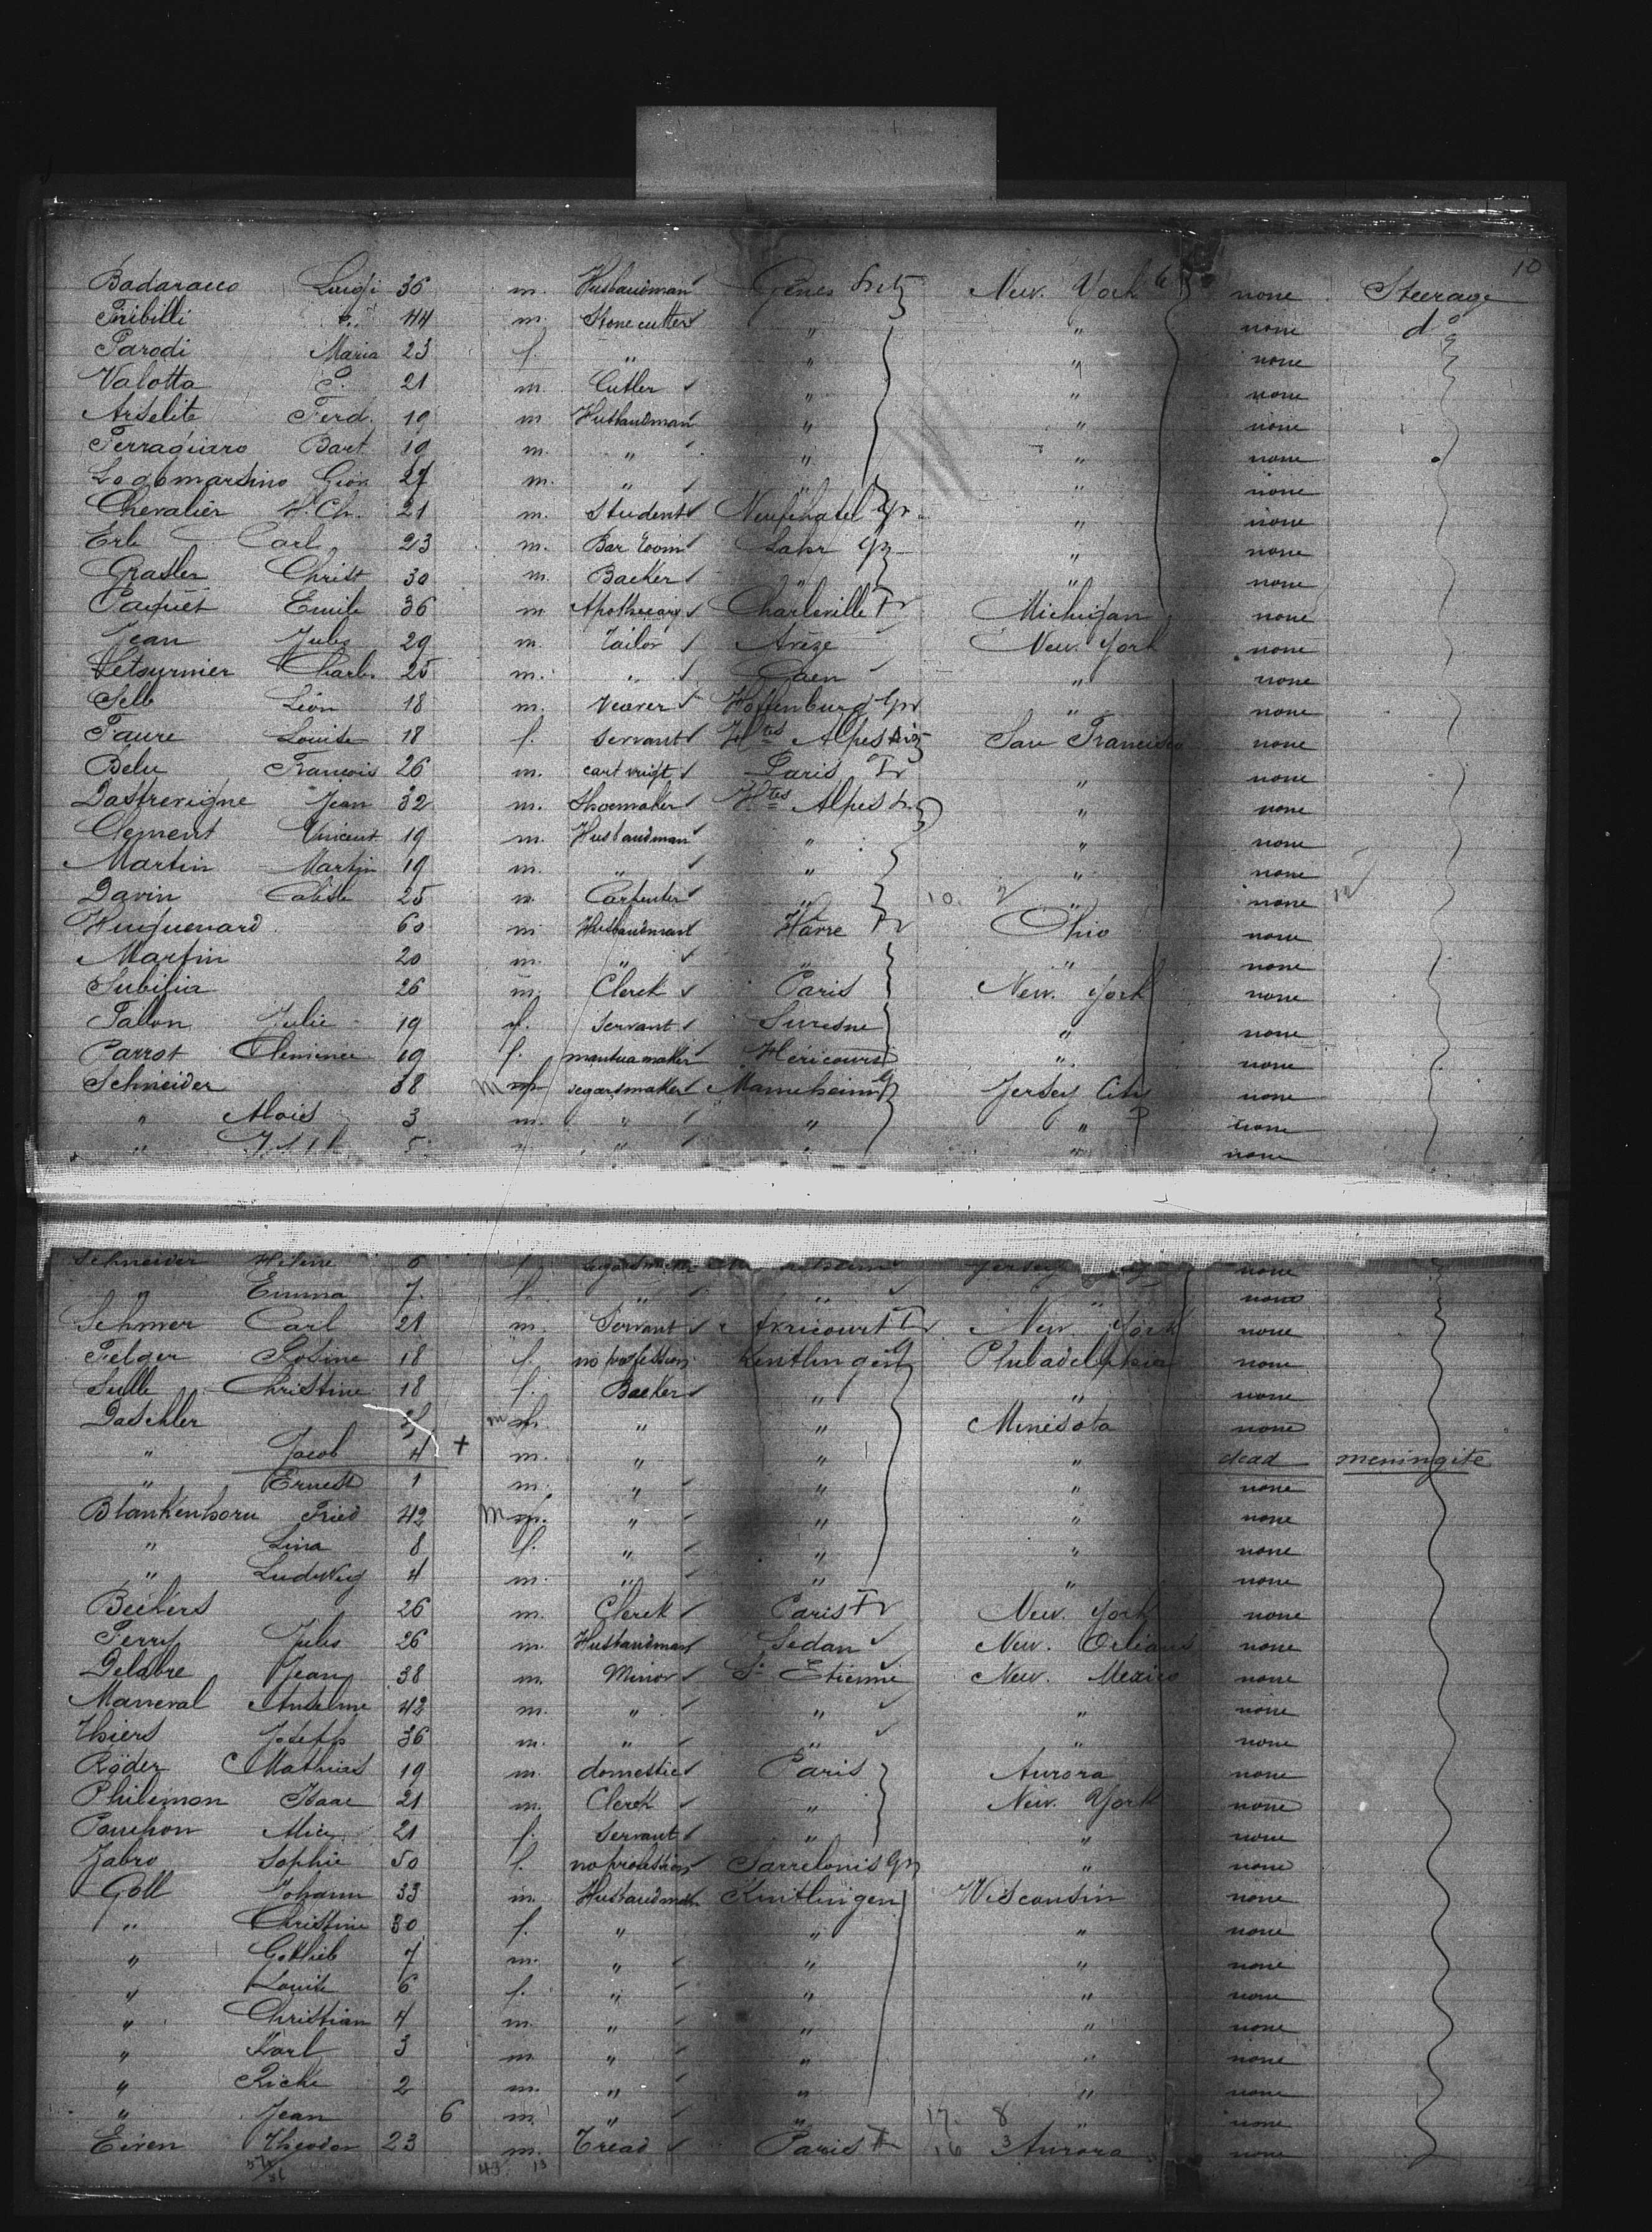 10
Badaracco Luigi 36 m. Husbandman Gênes New. York none Steerage
Tribilli 44 m. Stone cutter " " none d°
Parodi Maria 23 f. " " " none
Valotta P. 21 m. Cutler " " none
Arselite Ferd. 19 m Husbandman " " none
Ferraguiaro Bart 19 m. " " " none
Logomarsino Giov. 27 m. " " " none
Chevalier H. Ch. 21 m. Student Neufchatel " none
Erb Carl 23 m. Bar room Lahr " none
Grasler Christ 30 m. Backer " " none
Paquet Emile 36 m Apothecary Charleville Fr Michigan none
Jean Jules 29 m. Tailor Arèze New. York none
Charles 25 m. " Caen " none
Selb Léon 18 m. Weaver Hoffenburg " none
Faure Louise 18 f. servant Htes Alpes San Francisco none
Belu François 26 m. cart wrigt Paris Fr " none
Dastrevigne Jean 32 m. Shoemaker Htes Alpes " none
Clement Vincent 19 m. Husbandman " " none
Martin Martin 19 m. " " " none
Davin Caliste 25 m. Carpenter " 10. 2 " none
Huquenard 60 m Husbandman Havre Fr Ohio none
Martin 20 m. " " " none
Subilia 26 m. Clerck Paris New. York none
Talon Julie 19 f. servant Suresne " none
Parrot Cleminie 19 f. mantua maker Héricourt " none
Schneider 38 m segars maker Mannheim Jersey City none
" Alois 3 m. " " " none
" 5 " " " none
Schneider Helene 6 f segars maker Jersey none
" Emma 7. f. " " " none
Schwer Carl 21 m. Servant Avricourt Fr New. York none
Felger Rosine 18 f. no profession Kentlingen Philadelphia none
Sulle Christine 18 f. Backer " " none
Daschler m " " Minesota none
" Jacob 4 + m. " " " dead meningite
" Ernest 1 m. " " " none
Blankenhorn Fried 42 m " " " none
" Lina 8 f. " " " none
" Ludwig 4 m. " " " none
Beckers 26 m. Clerck Paris Fr New. York none
Ferry Jules 26 m. Husbandman Sedan New. Orleans none
Delabre Jean 38 m. Minor St Etienne New. Mexico none
Manneval Anselme 42 m. " " " none
Thiers Joseph 36 m. " " " none
Röder Mathias 19 m. domestic Paris Aurora none
Philemon Isaac 21 m. Clerck " New. York none
Pouchon Alice 21 f. Servant " " none
Jabro Sophie 50 f. no profession Sarrelouis " none
Goll Johann 33 m. Husbandman Knittlingen Wisconsin none
" Christine 30 f. " " " none
" Gottlieb 7 m. " " " none
" Louise 6 f. " " " none
" Christian 4 m. " " " none
" Karl 3 m. " " " none
" Ricke 2 m. " " " none
" Jean 6 m. " " 17. 8 " none
Eiren Theodor 23 m. Tread Paris 16 3 Aurora none
43 13